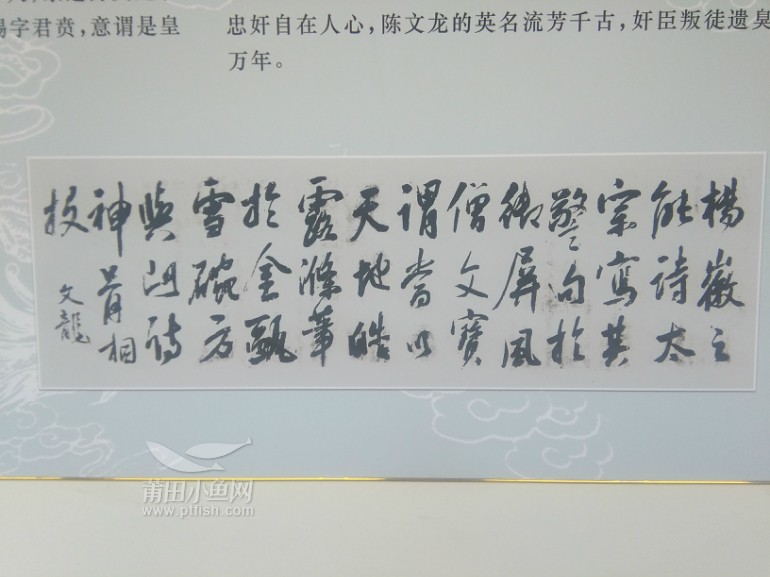 赐字君贲，意谓是皇
忠奸自在人心，陈文龙的英名流芳千古，奸臣叛徒遗臭
万年。
楊徽之
能詩太
宗寫其
警句於
御屏風
僧文寶
謂當以
天地皓
露滌筆
於金甌
雪碗方
與此詩
神骨相
投
文龍
莆田小鱼网
www.ptfish.com